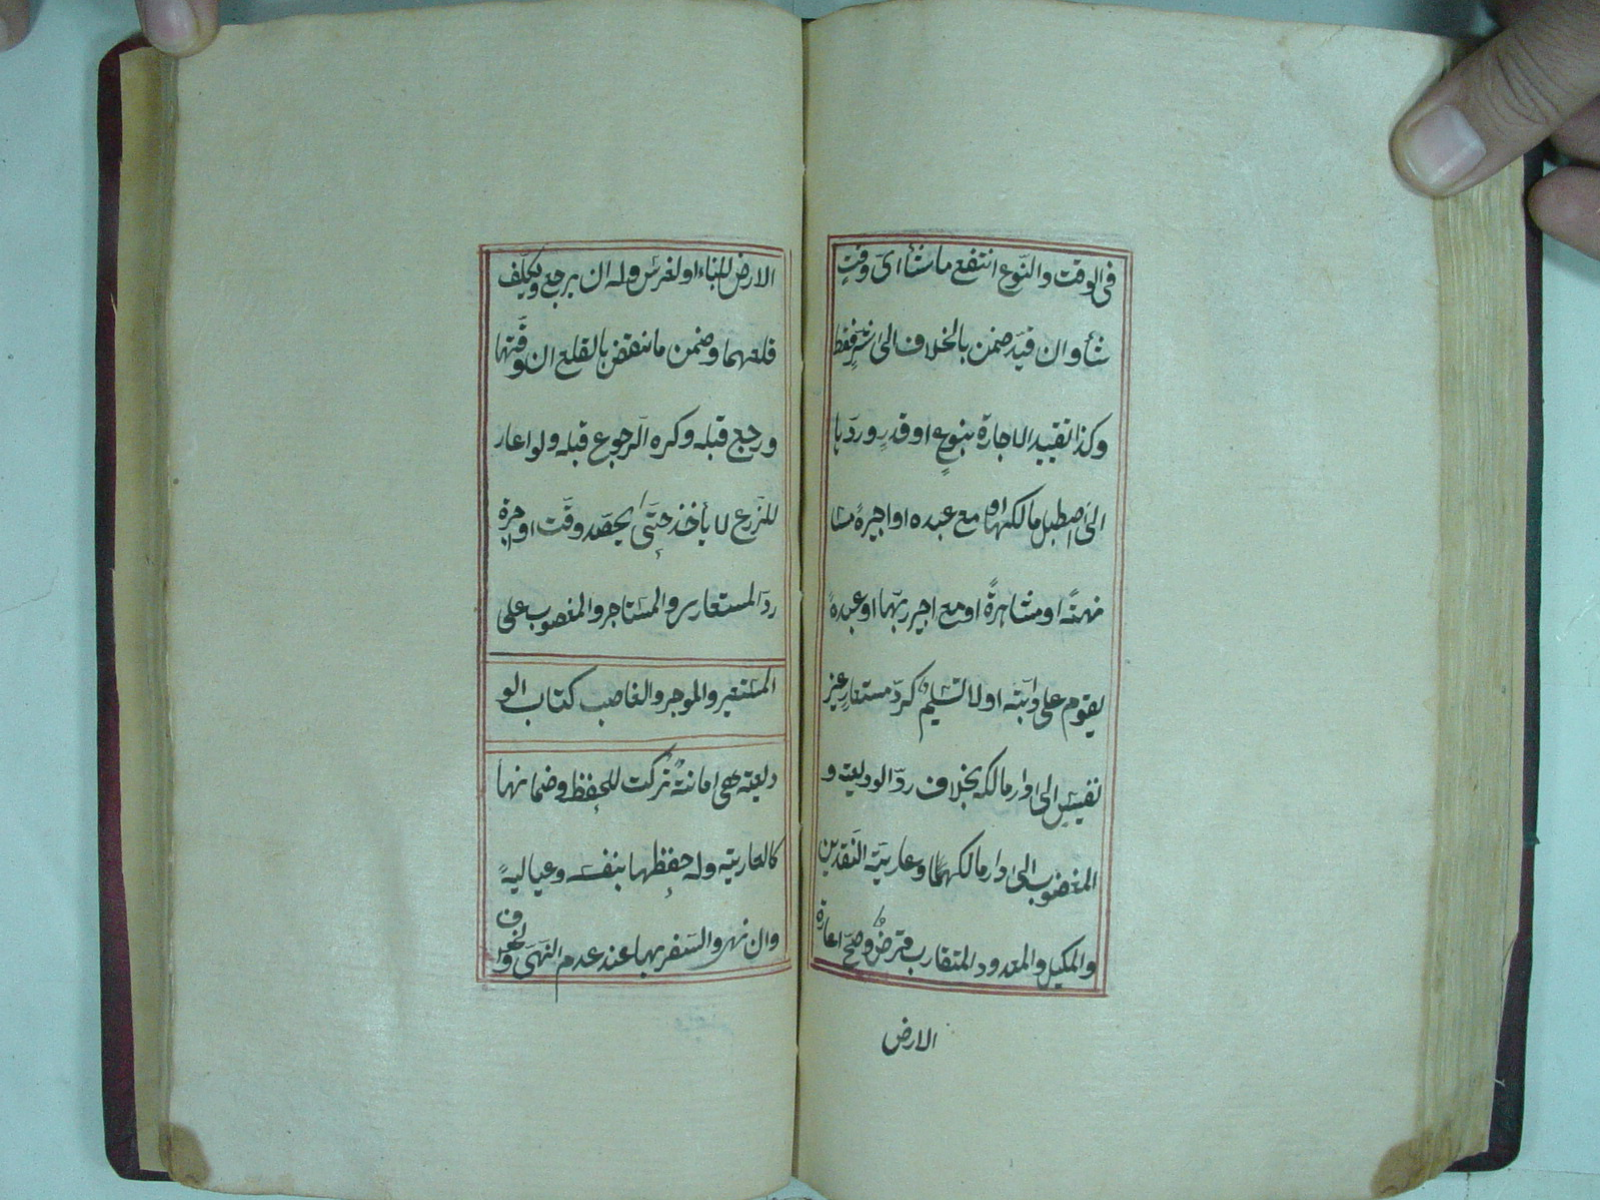 فى الوقت والنّوع انتفع ما شاء اىّ وقت
شاء وان قيّد ضمن بالخلاف الى شرّ فقط
وكذا تقييد الاجارة بنوع او قدر وردّها
الى اصطبل مالكها او مع عبده او اجيره مسا
نهةً او مشاهرةً او مع اجير ربّها او عبدهً
يقوم على دابته او لا تسليمٌ كردّ مستعار غير
نفيس الى دار مالكه بخلاف ردّ الوديعة و
المغضوب الى دار مالكهما وعارية النّقدين
والمكيل والمعدود المتقارب قرضٌ وصحّ اعارة
الارض
الارض للبناء او لغرس وله ان يرجع ويكلّف
قلعهما وضمن ما نقض بالقلع ان وقّتها
ورجع قبله وكره الرّجوع قبله ولو اعار
للزّرع لا يأخذ حتّى يحصد وقّت او اجرة
ردّ المستعار والمستاجر والمغصوب على
المستعير والموجر والغاصب كتاب الو
ديعة هى امانةٌ تركت للحفظ وضمانها
كالعارية وله حفظها بنفسه وعياله
وان نهى والسّفر بها عند عدم النّهى والخوف